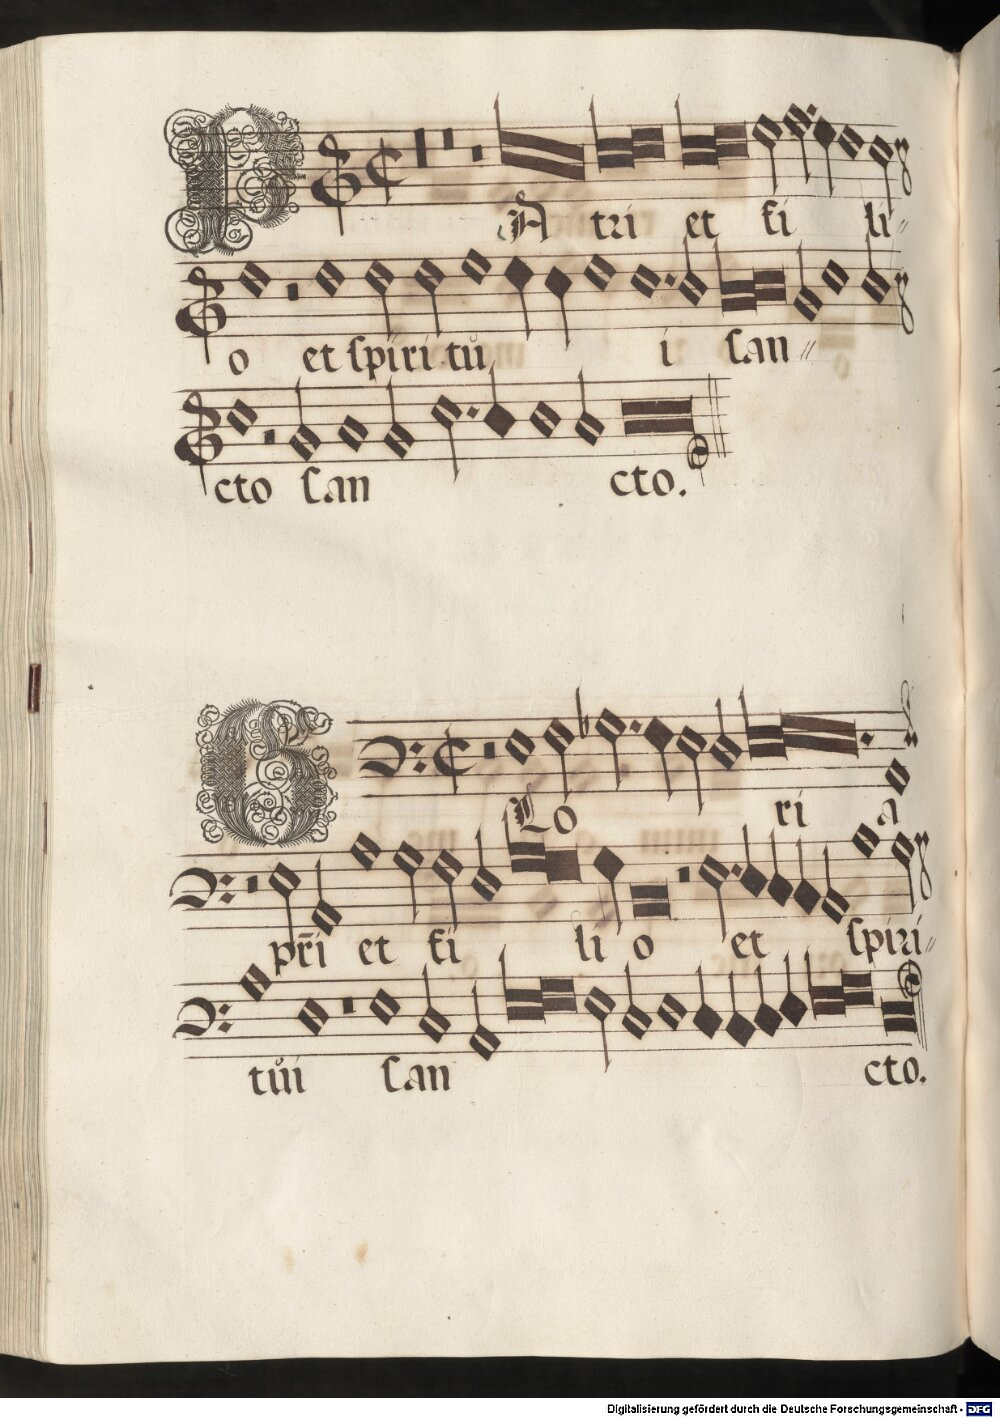 PAtri et fi li〃
o et spiri tů i san〃
cto san cto.
GLo ri a
pr̄i et fi li o et spiri〃
tůi san cto.
Digitalisierung gefördert durch die Deutsche Forschungsgemeinschaft - DFG